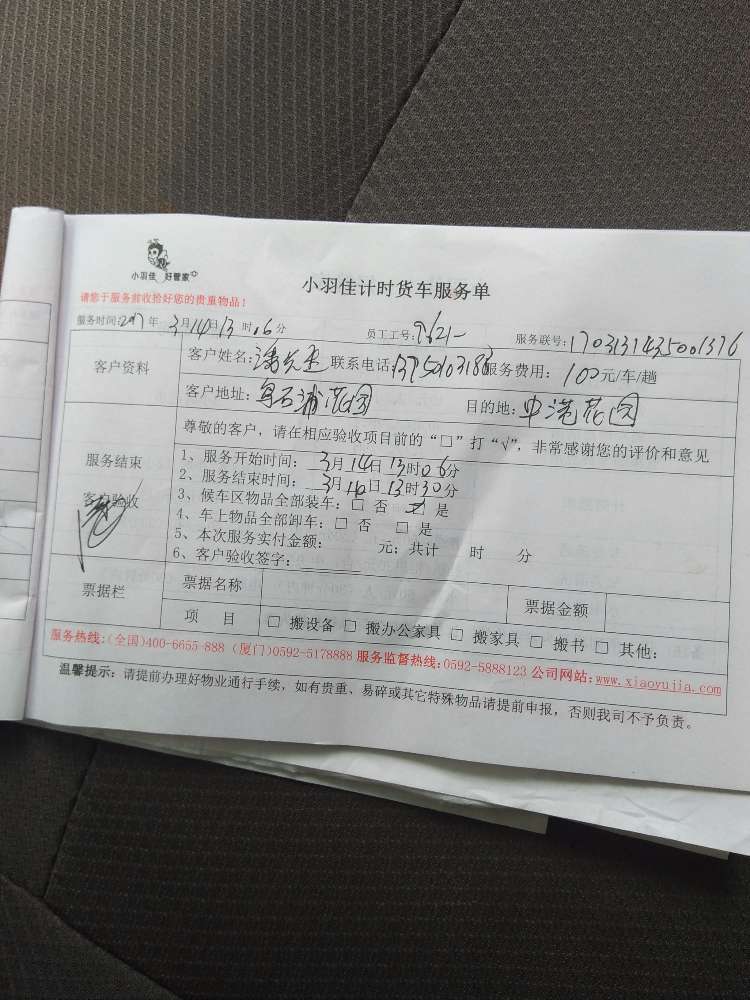 小羽佳 好管家
小羽佳计时货车服务单
请您于服务前收拾好您的贵重物品！
服务时间:2017年 3月14日13时06分 员工工号:9621 服务联号:1703131435001376
客户资料
客户姓名: 联系电话: 服务费用: 100元/车/趟
客户地址:乌石浦花园 目的地:中港花园
尊敬的客户，请在相应验收项目前的“□”打“√”，非常感谢您的评价和意见
服务结束
客户验收
1、服务开始时间： 3月14日13时06分
2、服务结束时间： 3月14日13时30分
3、候车区物品全部装车：□ 否 ☑ 是
4、车上物品全部卸车：□ 否 □ 是
5、本次服务实付金额： 元；共计 时 分
6、客户验收签字：
票据栏
票据名称 票据金额
项 目 □ 搬设备 □ 搬办公家具 □ 搬家具 □ 搬书 □ 其他:
服务热线:(全国)400-6655-888 (厦门)0592-5178888 服务监督热线:0592-5888123 公司网站:www.xiaoyujia.com
温馨提示：请提前办理好物业通行手续，如有贵重、易碎或其它特殊物品请提前申报，否则我司不予负责。